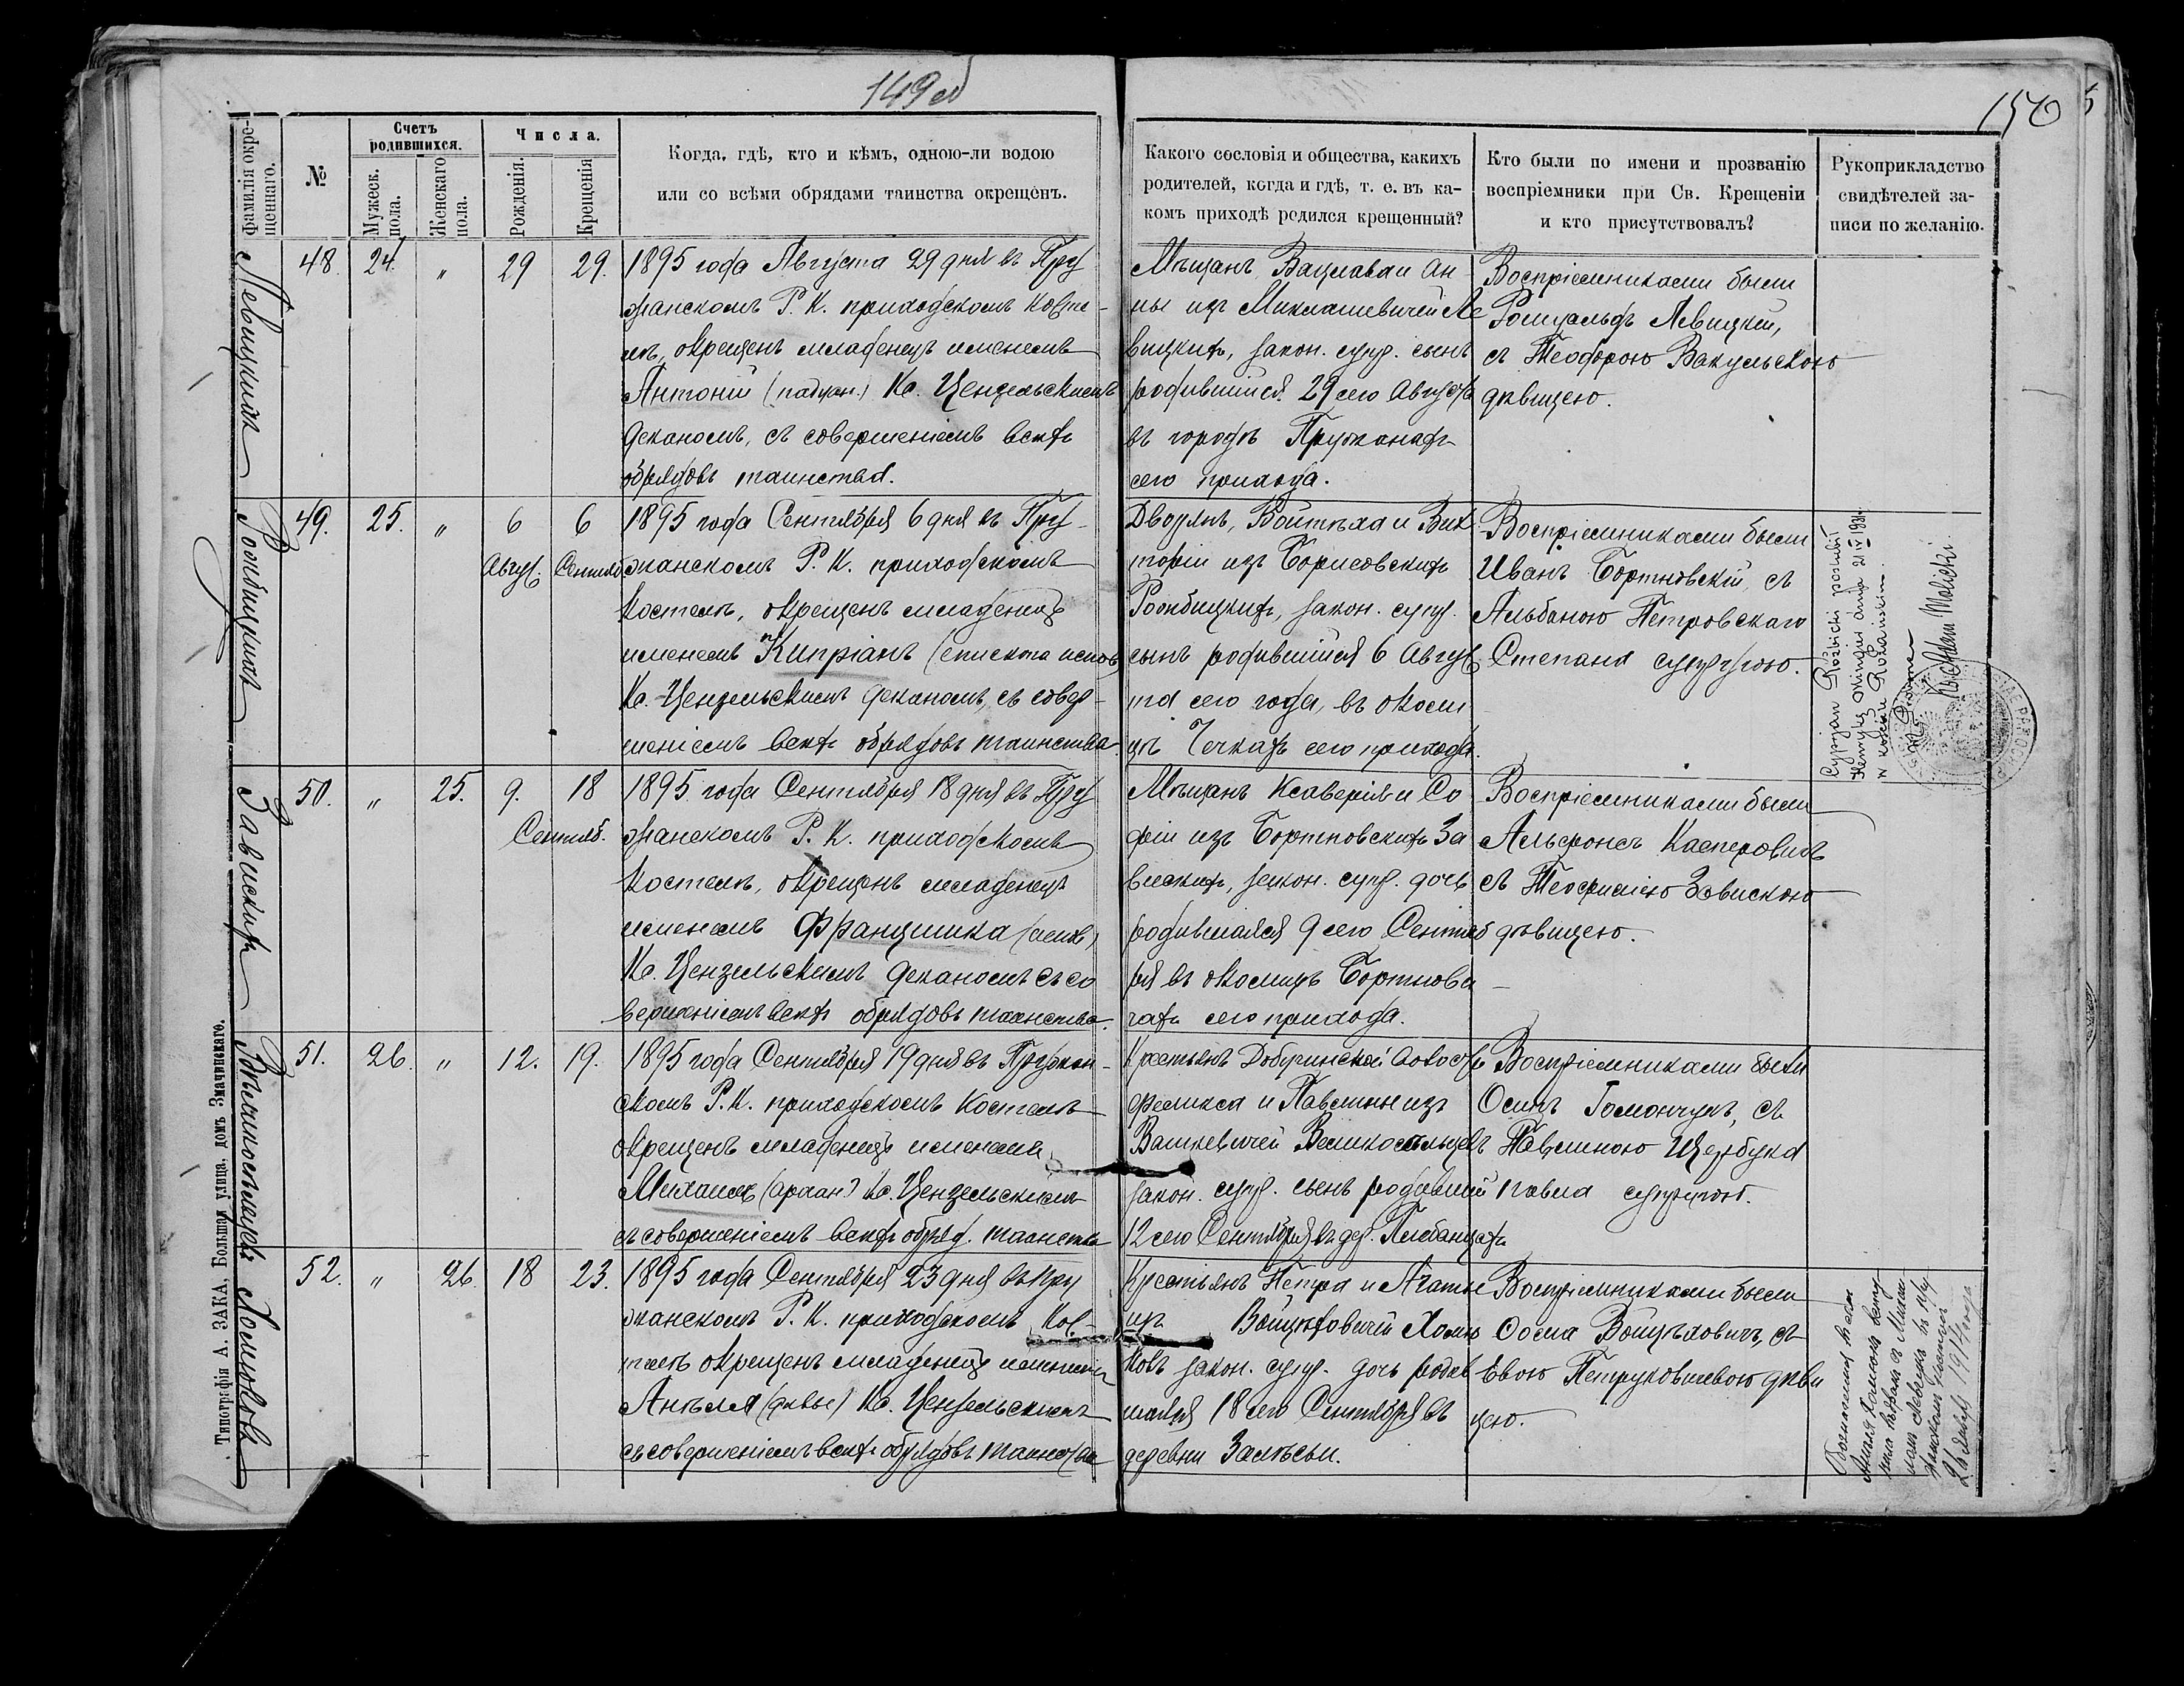 149 об
150
5
Фамилія окре-
щеннаго.
№
Счетъ
родившихся.
Мужеск.
пола.
Женскаго
пола.
Числа.
Рожденія.
Крещенія
Когда, гдѣ, кто и кѣмъ, одною-ли водою
или со всѣми обрядами таинства окрещенъ.
Какого сословія и общества, какихъ
родителей, когда и гдѣ, т. е. въ ка-
комъ приходѣ родился крещенный?
Кто были по имени и прозванію
воспріемники при Св. Крещеніи
и кто присутствовалъ?
Рукоприкладство
свидѣтелей за-
писи по желанію.
Левицкихъ
48. 24. „ 29 29.
1895 года Августа 29 дня въ Пру
жанскомъ Р. К. приходскомъ косте-
лѣ, окрещенъ младенецъ именемъ
Антоній (падуан.) Кс. Цензельскимъ
деканомъ, съ совершеніемъ всѣхъ
обрядовъ таинства.
Мѣщанъ, Вацлава и Ан-
ны изъ Миклашевичей Ле
вицкихъ, закон. супр. сынъ
родившійся 29 сего Августа
въ городѣ Пружанахъ
сего прихода.
Воспріемниками были
Ромуальдъ Левицкій,
съ Теодорою Вакульскою
дѣвицею.
Ромбицкихъ
49. 25. „ 6 6
Авгус. Сентяб
1895 года Сентября 6 дня въ Пру-
жанскомъ Р. К. приходскомъ
костелѣ, окрещенъ младенецъ
именемъ Кипріанъ (епископа испов
Кс. Цензельскимъ деканомъ, съ совер-
шеніемъ всѣхъ обрядовъ таинства.
Дворянъ, Войтѣха и Вик
торіи изъ Борисовскихъ
Ромбицкихъ, закон. супр.
сынъ родившійся 6 Авгус
та сего года, въ околи
цѣ Чечкахъ сего прихода.
Воспріемниками были
Иванъ Бортновскій, съ
Альбиною Петровскаго
Степана супругою.
Cyprjan Różbicki poślubił
w kościele Różańskim.
Завискихъ
50. „ 25. 9. 18
Сентяб.
1895 года Сентября 18 дня въ Пру
жанскомъ Р. К. приходскомъ
костелѣ, окрещенъ младенецъ
именемъ Францишка
Кс. Цензельскимъ деканомъ съ со
вершеніемъ всѣхъ обрядовъ таинства.
Мѣщанъ Ксаверія и Со
фіи изъ Бортновскихъ За
вискихъ, закон. супр. дочь
родившаяся 9 сего Сентяб
ря въ околицѣ Бортнови
чахъ сего прихода.
Воспріемниками были
Альфонсъ Касперовичъ
съ Теофиліею Завискою
дѣвицею.
Великосельцевъ
51. 26. „ 12. 19.
1895 года Сентября 19 дня въ Пружан-
скомъ Р. К. приходскомъ костелѣ
окрещенъ младенецъ именемъ
Михаилъ (архан.) Кс. Цензельскимъ
съ совершеніемъ всѣхъ обряд. таинства
Крестьянъ Добучинской волости
Феликса и Павлины изъ
Вашкевичей Великосельцевъ
закон. супр. сынъ родившій
12 сего Сентября въ дер.
Воспріемниками были
Осипъ Гомончукъ, съ
Павлиною Щербука
Павла супругою.
Хомковъ
52. „ 26. 18 23.
1895 года Сентября 23 дня въ Пру
жанскомъ Р. К. приходскомъ кос-
телѣ окрещенъ младенецъ именемъ
Ангеля (дѣвы) Кс. Цензельскимъ
съ совершеніемъ всѣхъ обрядовъ таинства
Крестьянъ Петра и Агаты
изъ Войцѣховичей Хомю
ковъ закон. супр. дочь родив
шаяся 18 сего Сентября въ
деревни Залѣсьи.
Воспріемниками были
Фома Войцѣховичъ, съ
Евою Петруковичевою дѣви
цею.
1914 года
Типографія А. ЗАКА, Большая улица, домъ Значинскаго.